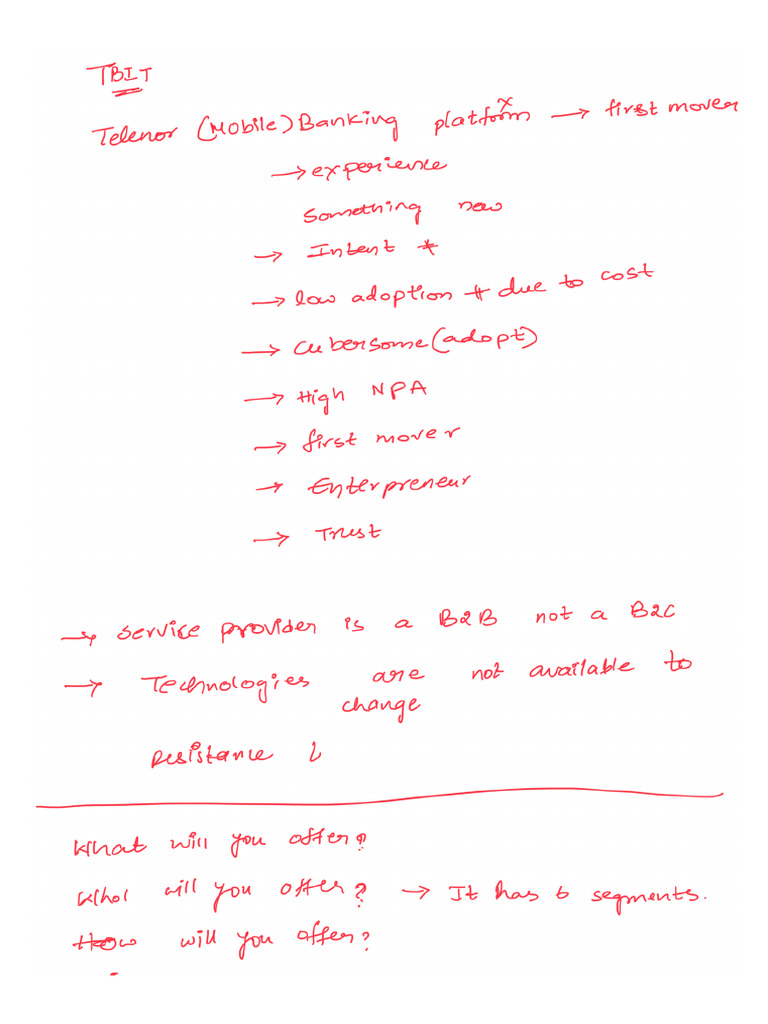 TBIT
Telenor (Mobile) Banking platform x → first mover
→ experience
something new
→ Intent *
→ low adoption * due to cost
→ cubersome (adopt)
→ High NPA
→ first mover
→ Enterpreneur
→ Trust
→ service provider is a B2B not a B2C
→ Technologies are not available to
change
Resistance
What will you offer?
will you offer? → It has 6 segments.
How will you offer?